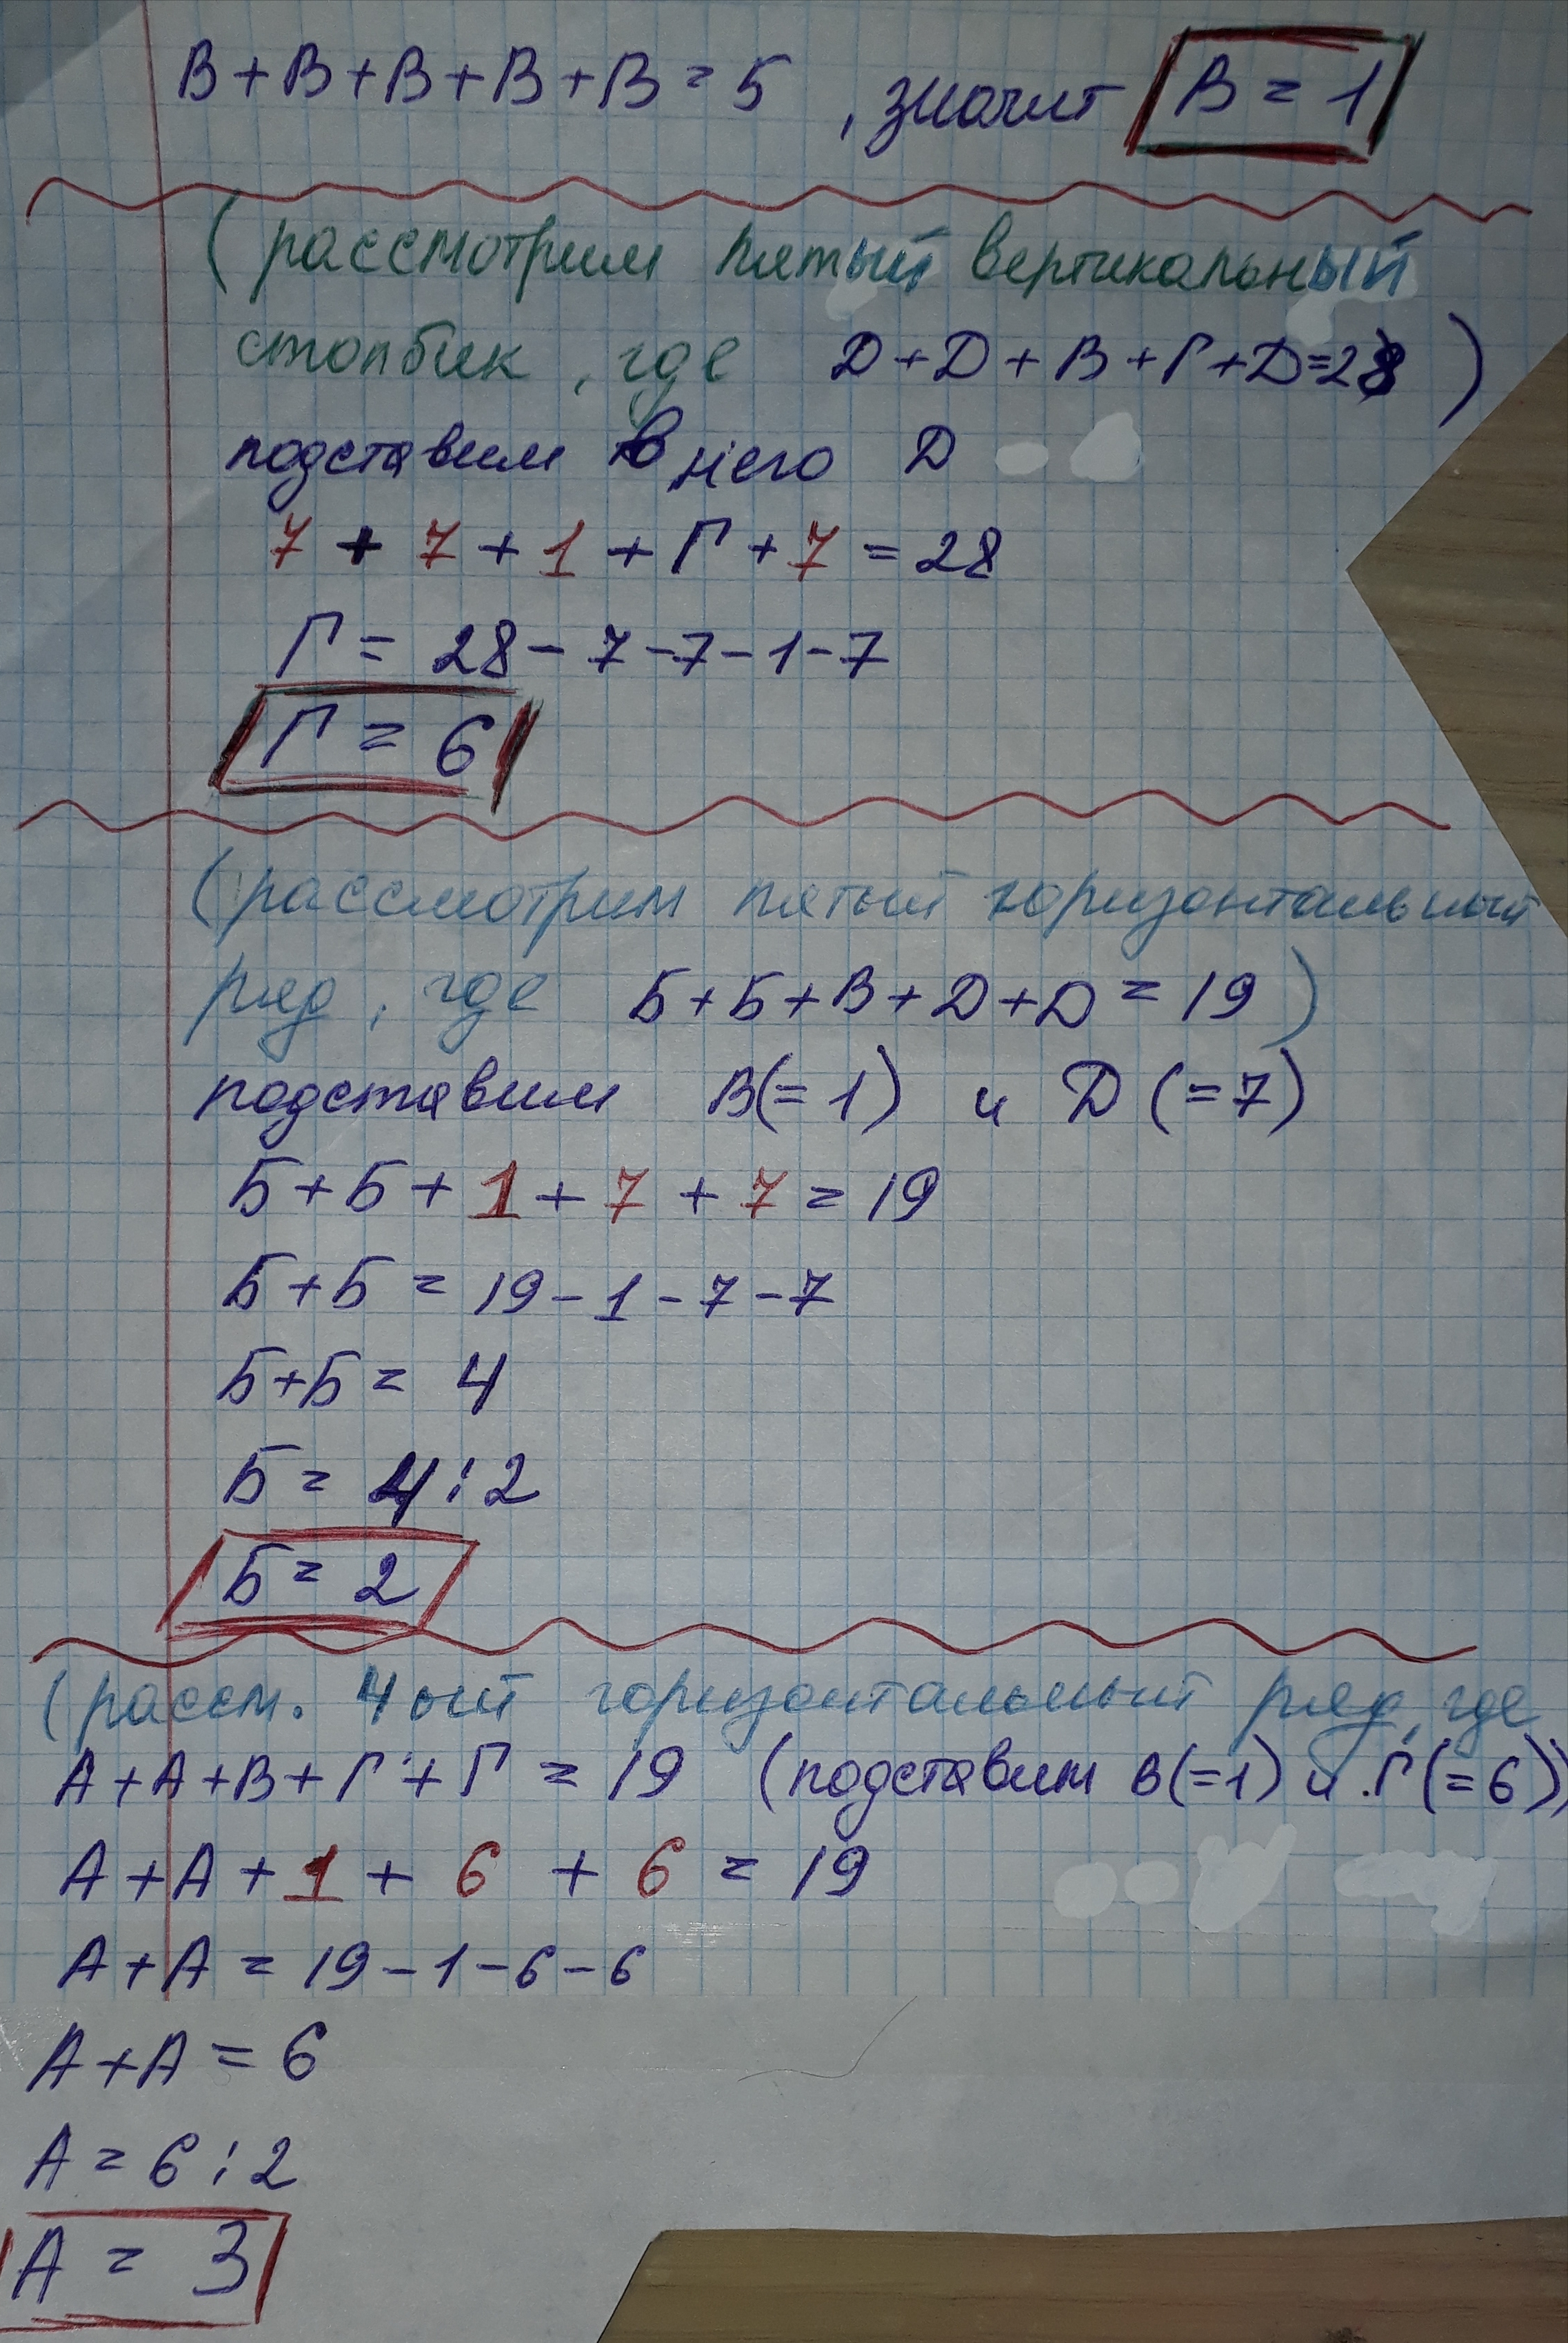 В+В+В+В+В=5, значит В=1
(рассмотрим пятый вертикальный
столбик, где Д+Д+В+Г+Д=28)
подставим в него Д
7+7+1+Г+7=28
Г=28-7-7-1-7
Г=6
(рассмотрим пятый горизонтальный
ряд, где Б+Б+В+Д+Д=19)
подставим В(=1) и Д(=7)
Б+Б+1+7+7=19
Б+Б=19-1-7-7
Б+Б=4
Б=4:2
Б=2
(рассм. 4ый горизонтальный ряд, где
А+А+В+Г+Г=19 (подставим В(=1) и Г(=6))
А+А+1+6+6=19
А+А=19-1-6-6
А+А=6
А=6:2
А=3